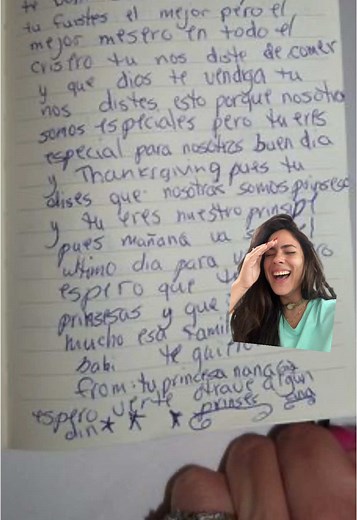 tu fuistes el mejor pero el
mejor mesero en todo el
crisero tu nos diste de comer
y que dios te vendiga tu
nos distes esto porque nosotra
somos especiales pero tu eres
especial para nosotras buen dia
y Thanksgiving pues tu
dises que nosotras somos prinsesa
y tu eres nuestro prinsipe
pues mañana va
ultimo dia para
espero que
prinsesas y que
mucho esa famili
babi te quie
from: tu princesa nana
espero verte otrave algun
din prinses